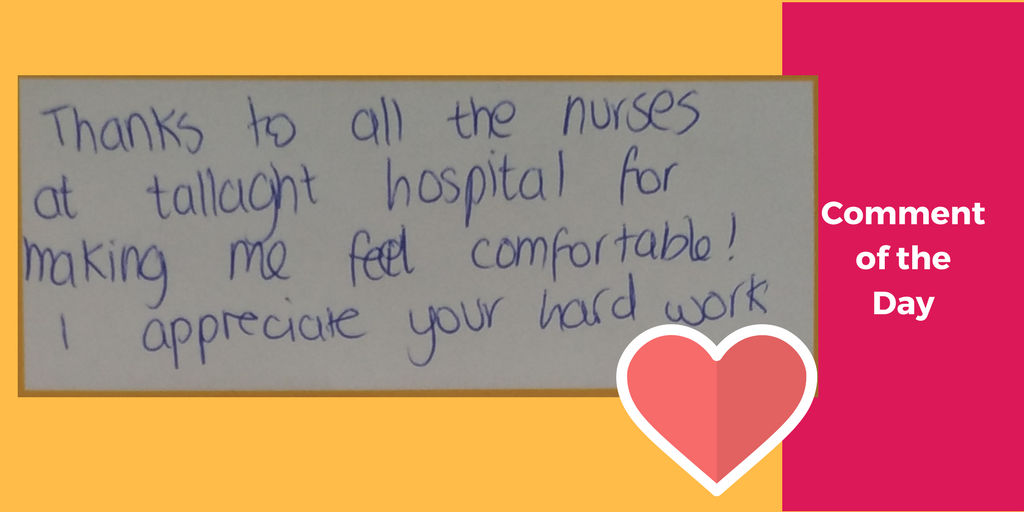 Thanks to all the nurses
at tallaght hospital for
making me feel comfortable!
I appreciate your hard work
Comment
of the
Day